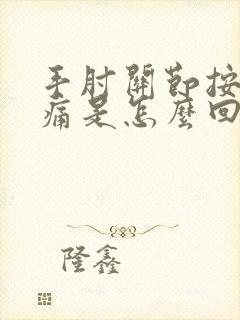 手肘關節按
痛是怎麼回
隆鑫